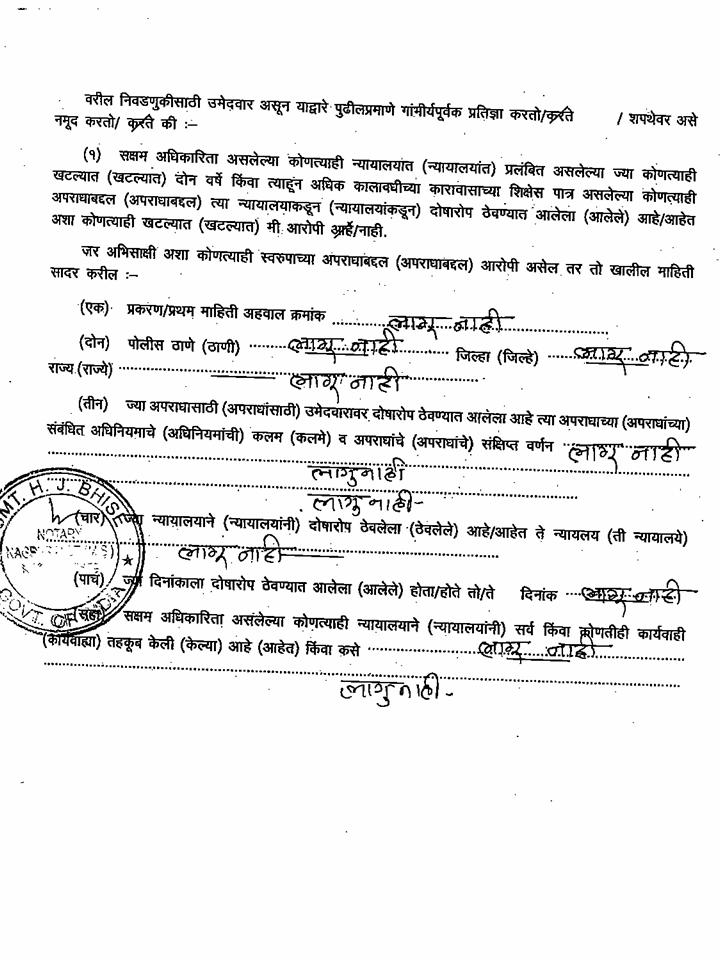 वरील निवडणुकीसाठी उमेदवार असून याद्वारे पुढीलप्रमाणे गांभीर्यपूर्वक प्रतिज्ञा करतो/करते / शपथेवर असे
नमूद करतो/ करते की :–
(१) सक्षम अधिकारिता असलेल्या कोणत्याही न्यायालयांत (न्यायालयांत) प्रलंबित असलेल्या ज्या कोणत्याही
खटल्यात (खटल्यात) दोन वर्षे किंवा त्याहून अधिक कालावधीच्या कारावासाच्या शिक्षेस पात्र असलेल्या कोणत्याही
अपराधाबद्दल (अपराधाबद्दल) त्या न्यायालयाकडून (न्यायालयांकडून) दोषारोप ठेवण्यात आलेला (आलेले) आहे/आहेत
अशा कोणत्याही खटल्यात (खटल्यात) मी आरोपी आहे/नाही.
जर अभिसाक्षी अशा कोणत्याही स्वरुपाच्या अपराधाबद्दल (अपराधाबद्दल) आरोपी असेल तर तो खालील माहिती
सादर करील :–
(एक) प्रकरण/प्रथम माहिती अहवाल क्रमांक लागू नाही
(दोन) पोलीस ठाणे (ठाणी) लागू नाही जिल्हा (जिल्हे) लागू नाही
राज्य (राज्ये) लागू नाही
(तीन) ज्या अपराधासाठी (अपराधांसाठी) उमेदवारावर दोषारोप ठेवण्यात आलेला आहे त्या अपराधाच्या (अपराधांच्या)
संबंधित अधिनियमाचे (अधिनियमांची) कलम (कलमे) व अपराधांचे (अपराधांचे) संक्षिप्त वर्णन लागू नाही
लागु नाही
लागु नाही-
(चार) ज्या न्यायालयाने (न्यायालयांनी) दोषारोप ठेवलेला (ठेवलेले) आहे/आहेत ते न्यायलय (ती न्यायालये)
लागू नाही
(पाच) ज्या दिनांकाला दोषारोप ठेवण्यात आलेला (आलेले) होता/होते तो/ते दिनांक लागू नाही
(सहा) सक्षम अधिकारिता असलेल्या कोणत्याही न्यायालयाने (न्यायालयांनी) सर्व किंवा कोणतीही कार्यवाही
(कार्यवाह्या) तहकूब केली (केल्या) आहे (आहेत) किंवा कसे लागू नाही
लागु नाही-
SMT. H. J. BHISE
NOTARY
GOVT. OF INDIA